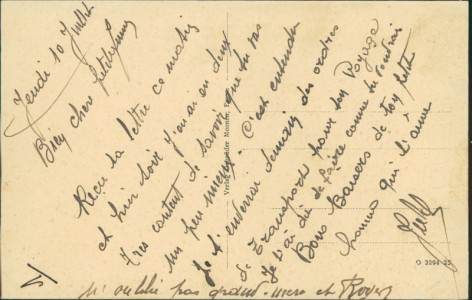 Jeudi 10 Juillet
Bien chère
Reçu ta lettre ce matin
et hier soir j'en ai eu deux
Très content de savoir que tu vas
un peu mieux. C'est entendu
je t'enverrai demain des ordres
de Transport pour ton Voyage
Je t'ai dit de faire comme tu voudrai
Bons Baisers de ton petit
homme qui t'aime
J'oublie pas grand-mère et
O 3294 25